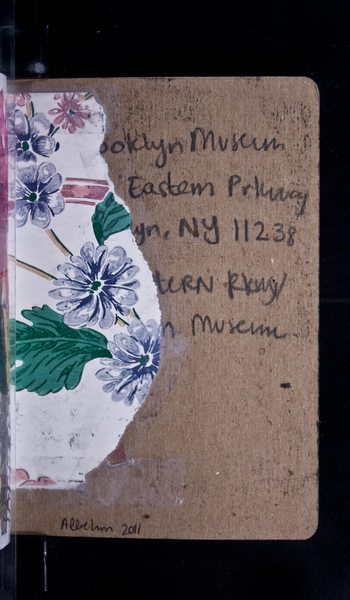 ooklyn Museum
Eastern Prkway
yn, NY 11238
tern Pkwy
n Museum
2011